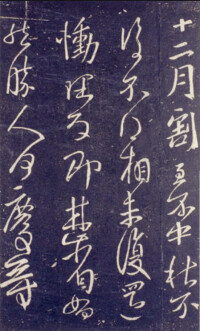 十二月割至不中秋不
復不得相未復還
慟理為即甚省如
何然勝人何慶等